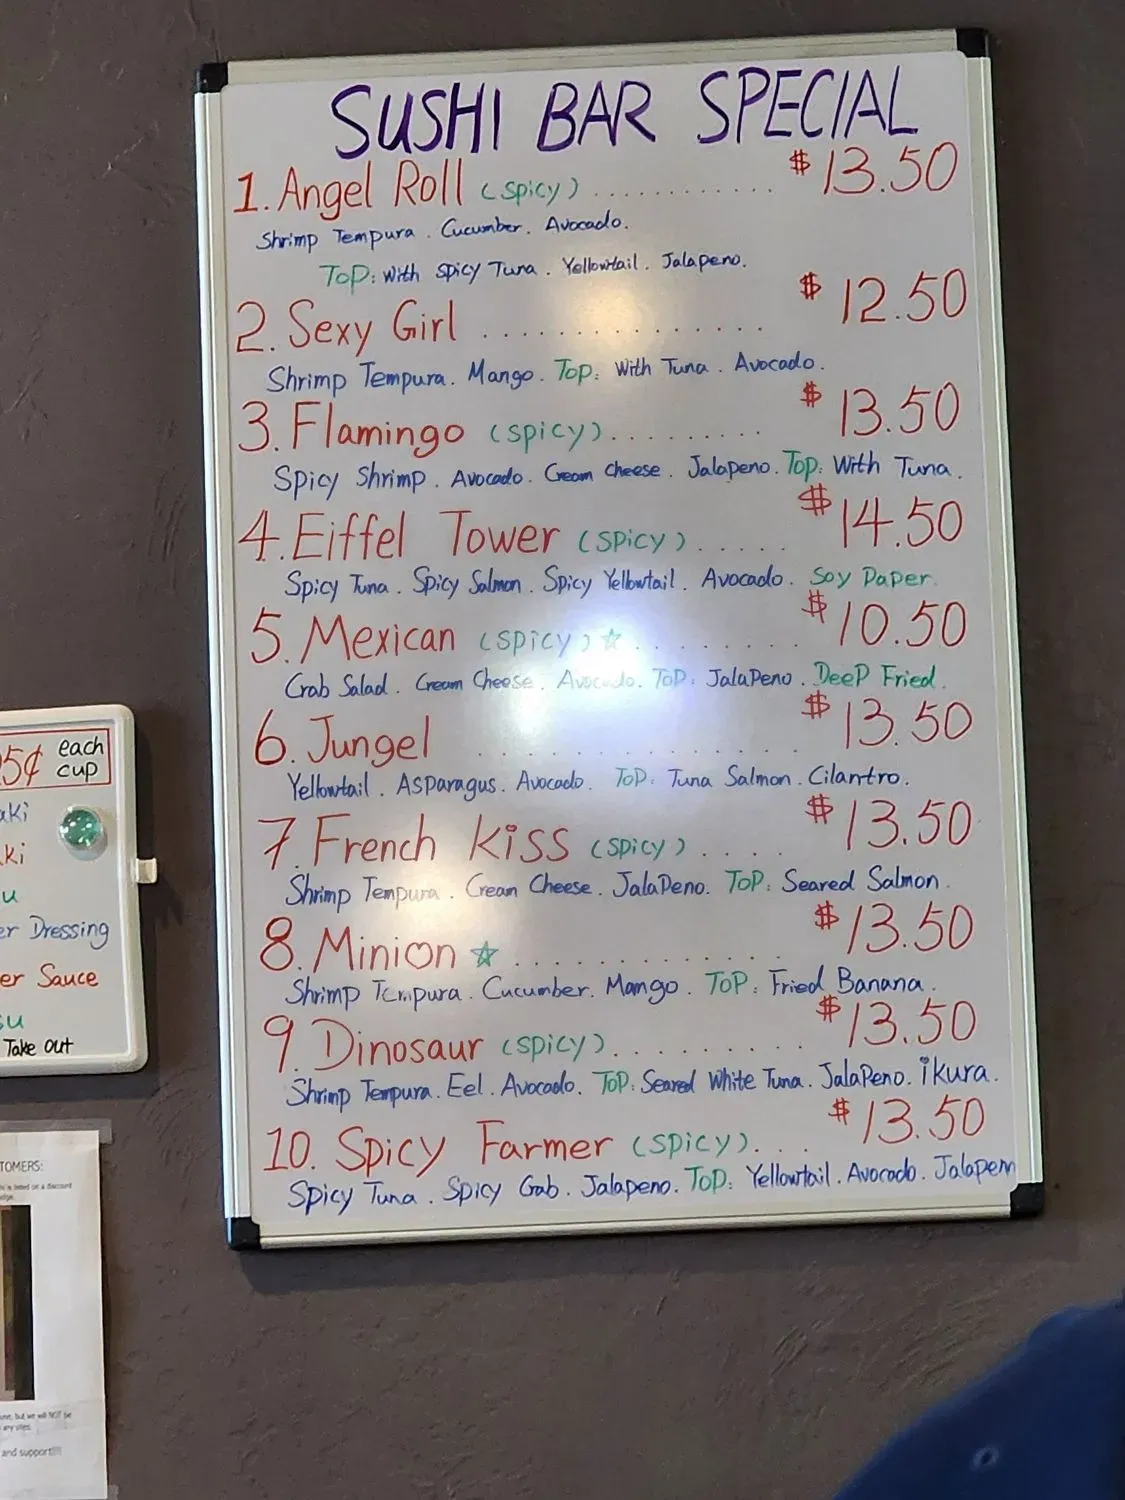 SUSHI BAR SPECIAL
1. Angel Roll (Spicy) ............ $13.50
Shrimp Tempura. Cucumber. Avocado.
Top: With Spicy Tuna. Yellowtail. Jalapeno.
2. Sexy Girl ............... $12.50
Shrimp Tempura. Mango. Top: With Tuna. Avocado.
3. Flamingo (Spicy) ......... $13.50
Spicy Shrimp. Avocado. Cream Cheese. Jalapeno. Top: With Tuna.
4. Eiffel Tower (Spicy) ..... $14.50
Spicy Tuna. Spicy Salmon. Spicy Yellowtail. Avocado. Soy Paper.
5. Mexican (Spicy) ☆ ......... $10.50
Crab Salad. Cream Cheese. Avocado. Top: Jalapeno. Deep Fried.
6. Jungel ............... $13.50
Yellowtail. Asparagus. Avocado. Top: Tuna Salmon. Cilantro.
7. French Kiss (Spicy) .... $13.50
Shrimp Tempura. Cream Cheese. Jalapeno. Top: Seared Salmon.
8. Minion ☆ ............. $13.50
Shrimp Tempura. Cucumber. Mango. Top: Fried Banana.
9. Dinosaur (Spicy) ......... $13.50
Shrimp Tempura. Eel. Avocado. Top: Seared White Tuna. Jalapeno. ikura.
10. Spicy Farmer (Spicy) ... $13.50
Spicy Tuna. Spicy Crab. Jalapeno. Top: Yellowtail. Avocado. Jalapen
5¢ each
cup
aki
ki
u
er Dressing
er Sauce
su
Take Out
TOMERS:
is listed on a discount
but we will NOT be
any sites.
and support!!!!